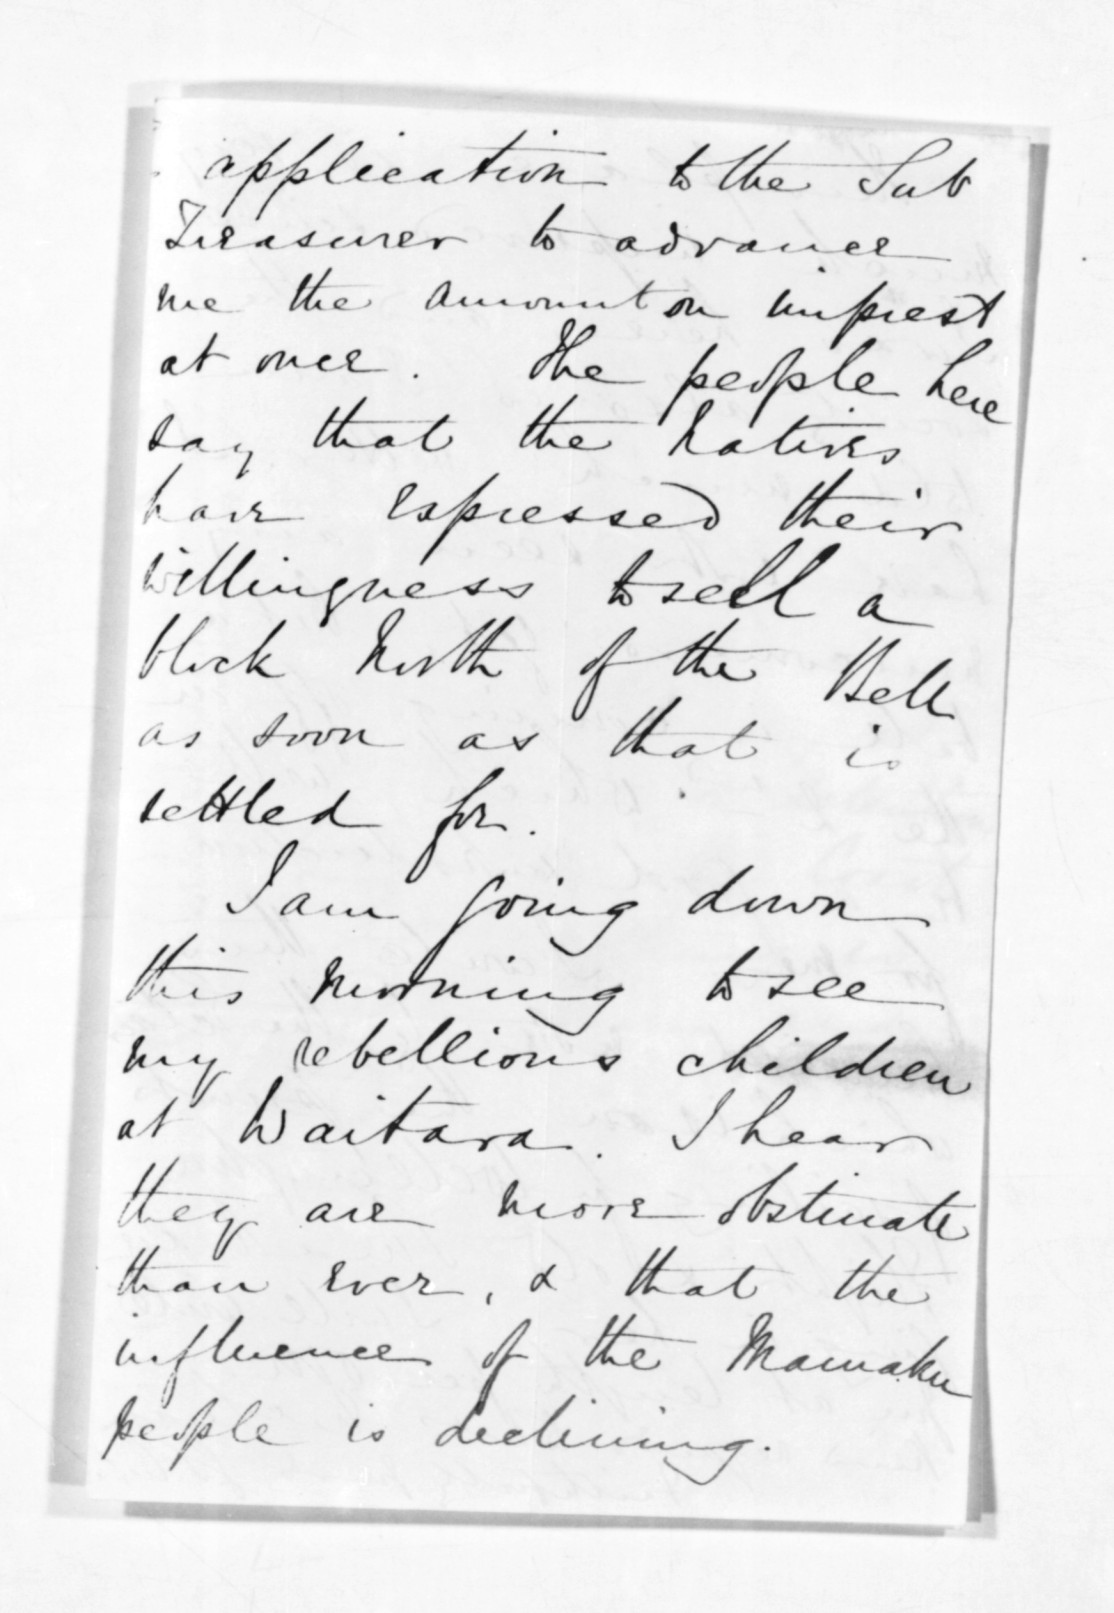 application to the Sub
Treasurer to advance
me the amount on imprest
at once. The people here
say that the Natives
have expressed their
willingness to sell a
block North of the Bell
as soon as that is
settled for.
I am going down
this morning to see
my rebellious children
at Waitara. I hear
they are more obstinate
than ever, & that the
influence of the Mamaku
people is declining.